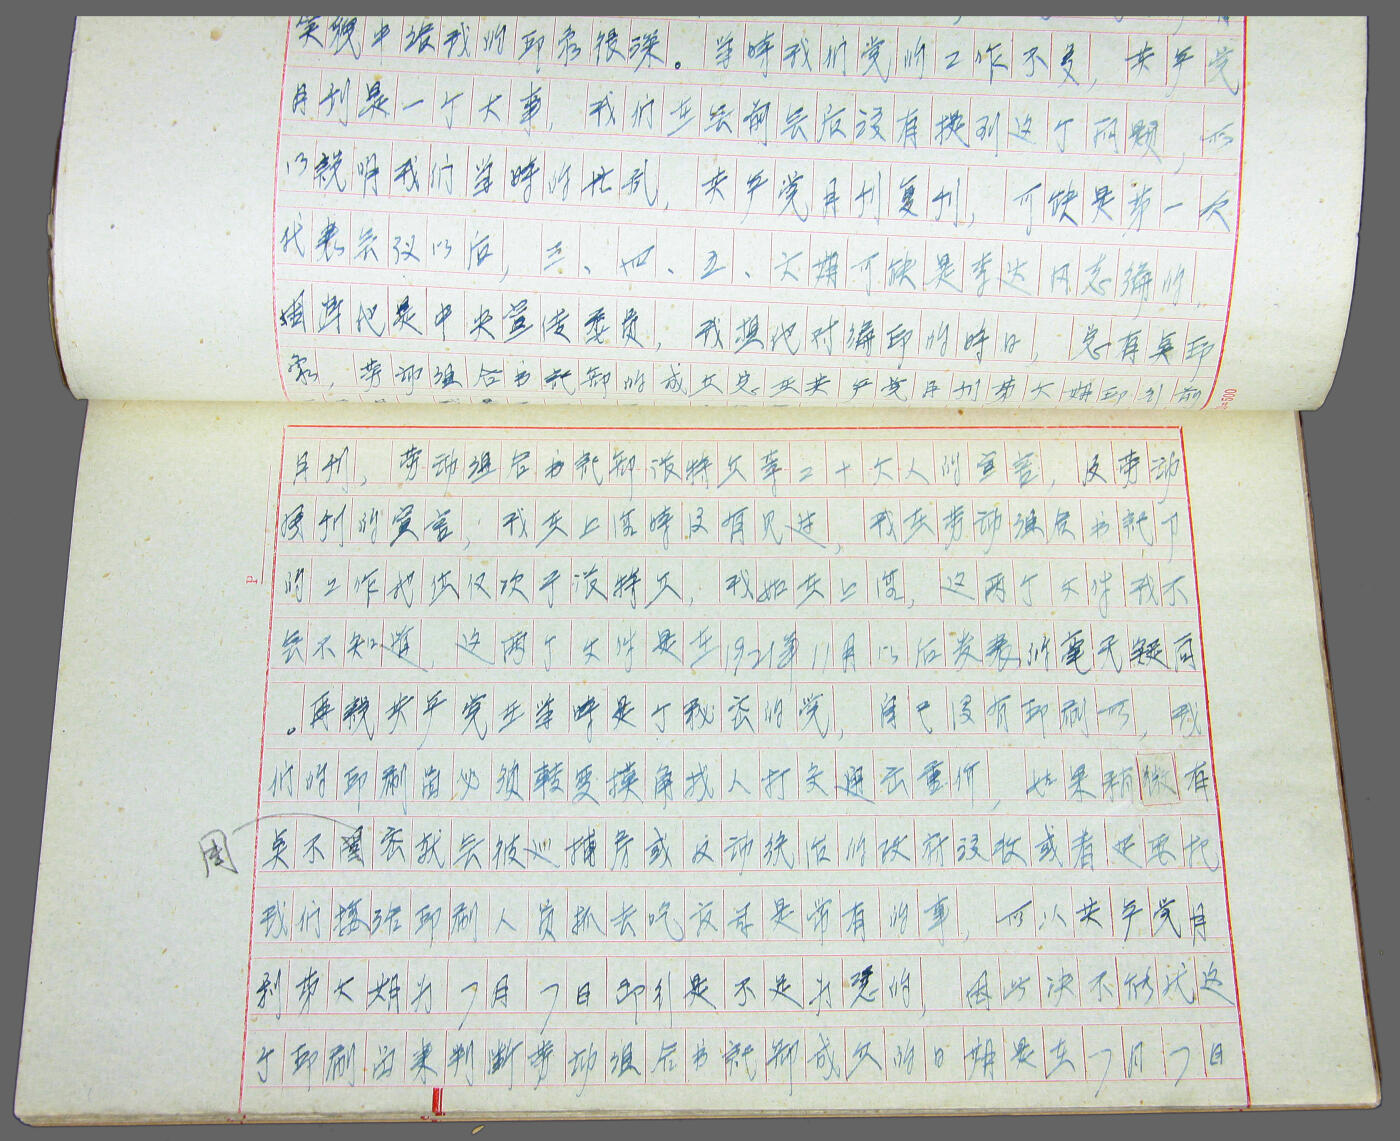 中给我的印象很深。当时我们党的工作不多，共产党
月刊是一个大事，我们在会前会后没有提到这个问题，所
以说明我们当时的忙乱，共产党月刊复刊，可能是第一次
代表会议以后，三、四、五、六期可能是李达同志编的，
他是中央宣传委员，我想他对编印的时日，总有点印
象，劳动组合书记部的成立定共产党月刊第六期印行前
月刊，劳动组合书记部派特立等二十六人的宣言，及劳动
周刊的宣言，我在上海时没有见过，我在劳动组合书记部
的工作地位仅次于派特立，我如在上海，这两个文件我不
会不知道 这两个文件是在1921年11月以后发表的毫无疑问
。再说共产党在当时是个秘密的党，自己没有印刷所，我
们的印刷品必须转弯摸角找人打交道出重价，如果稍微有
点不周密就会被巡捕房或反动统治的政府没收或者还要把
我们接洽印刷人员抓去吃官司是常有的事，所以共产党月
刊第六期为7月7日印行是不足为凭的，因此决不能拿这
个印刷品来判断劳动组合书记部成立的日期是在7月7日
周
P
500